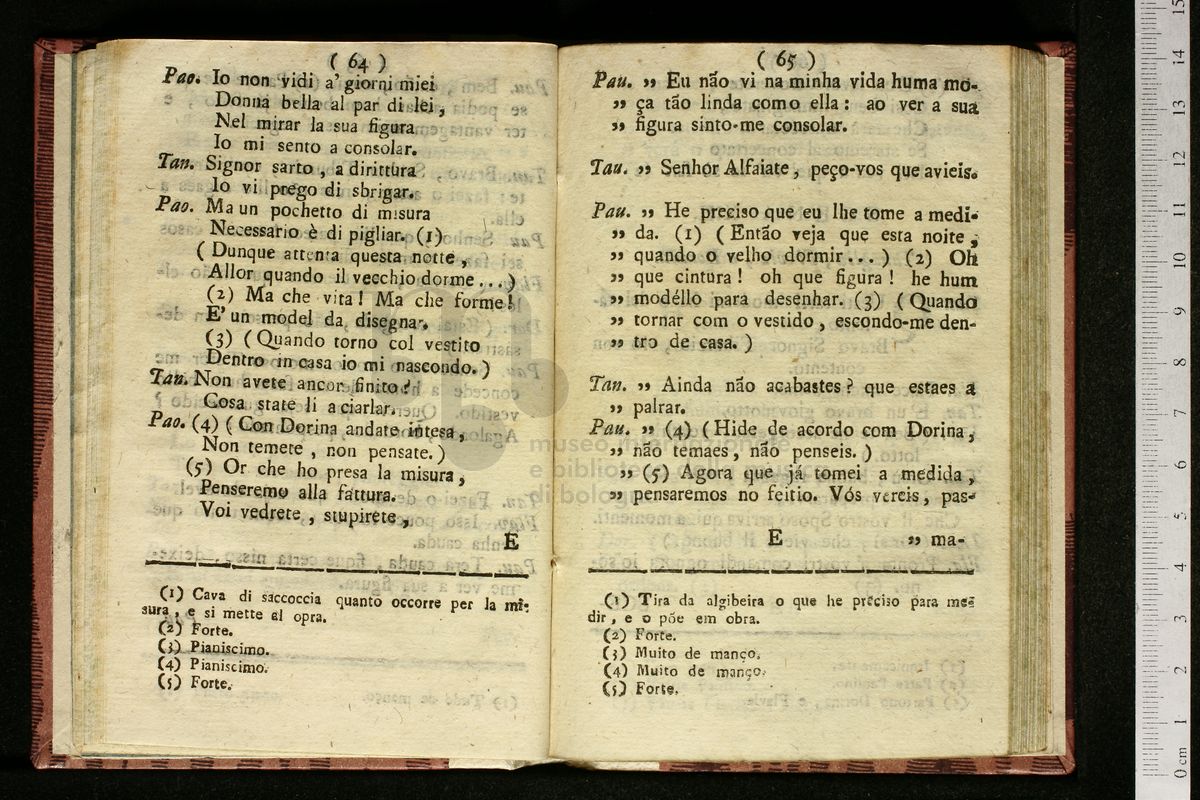 ( 64 )
Pao. Io non vidi a' giorni miei
Donna bella al par di lei,
Nel mirar la sua figura
Io mi sento a consolar.
Tan. Signor sarto, a dirittura
Io vi prego di sbrigar.
Pao. Ma un pochetto di misura
Necessario è di pigliar. (1)
( Dunque attenta questa notte,
Allor quando il vecchio dorme...)
(2) Ma che vita! Ma che forme!
E' un model da disegnar.
(3) (Quando torno col vestito
Dentro in casa io mi nascondo.)
Tan. Non avete ancor finito?
Cosa state lì a ciarlar.
Pao. (4) (Con Dorina andate intesa,
Non temete, non pensate.)
(5) Or che ho presa la misura,
Penseremo alla fattura.
Voi vedrete, stupirete,
E
(1) Cava di saccoccia quanto occorre per la mi-
sura, e si mette al opra.
(2) Forte.
(3) Pianiscimo.
(4) Pianiscimo.
(5) Forte.
( 65 )
Pau. ,, Eu não vi na minha vida huma mo-
,, ça tão linda como ella: ao ver a sua
,, figura sinto-me consolar.
Tau. ,, Senhor Alfaiate, peço-vos que avieis.
Pau. ,, He preciso que eu lhe tome a medi-
,, da. (1) (Então veja que esta noite,
,, quando o velho dormir...) (2) Oh
,, que cintura! oh que figura! he hum
,, modéllo para desenhar. (3) (Quando
,, tornar com o vestido, escondo-me den-
,, tro de casa.)
Tan. ,, Ainda não acabastes? que estaes a
,, palrar.
Pau. ,, (4) (Hide de acordo com Dorina,
,, não temaes, não penseis.)
,, (5) Agora que já tomei a medida,
,, pensaremos no feitio. Vós vereis, pas-
E ,, ma-
(1) Tira da algibeira o que he preciso para me-
dir, e o põe em obra.
(2) Forte.
(3) Muito de manço.
(4) Muito de manço.
(5) Forte.
museo internazionale
e biblioteca della musica
di bologna
0 cm 1 2 3 4 5 6 7 8 9 10 11 12 13 14 15